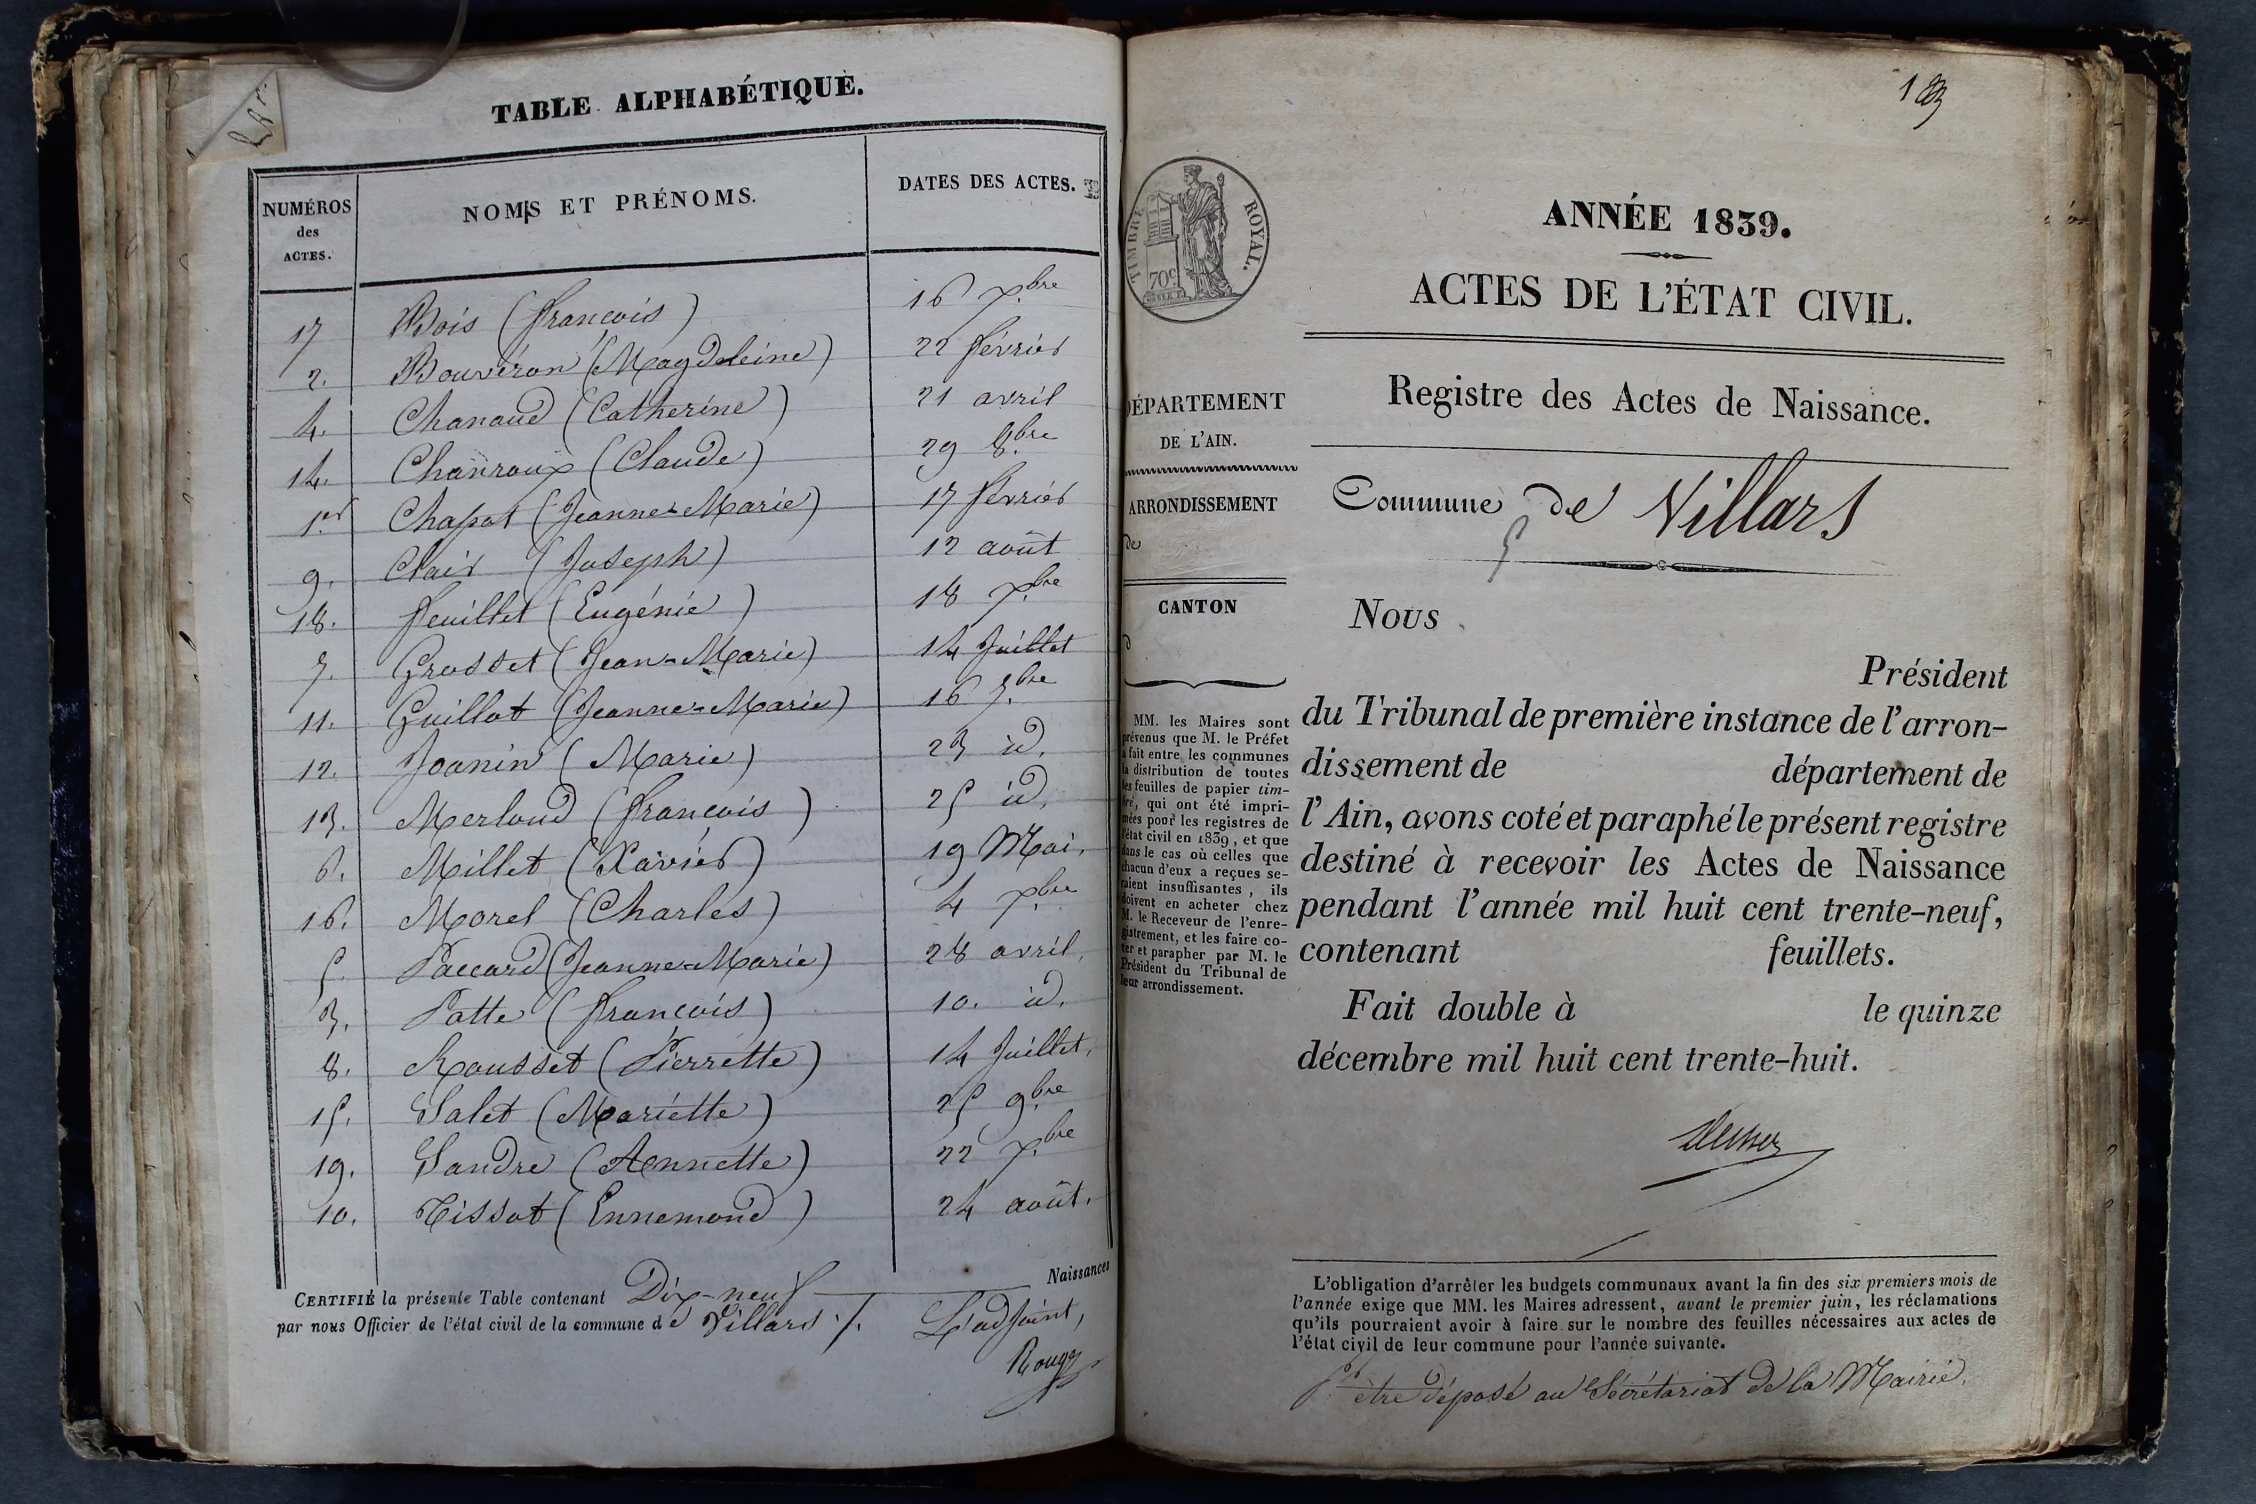 TABLE ALPHABÉTIQUE.
NUMÉROS
des
ACTES.
NOMS ET PRÉNOMS.
DATES DES ACTES.
17 Bois (François) 16 Xbre
2. Bouvéron (Magdeleine) 22 février
4. Chanaud (Catherine) 21 avril
14. Chanroux (Claude) 29 8.bre
1er Chapot (Jeanne-Marie) 17 février
9. Clair (Joseph) 12 août
18. Feuillet (Eugénie) 18 Xbre
7. Grosset (Jean-Marie) 14 Juillet
11. Guillot (Jeanne-Marie) 16 7.bre
12. Joanin (Marie) 23 id.
13. Merloud (François) 25 id.
6. Millet (Xavier) 19 Mai.
16. Morel (Charles) 4 Xbre
5. Paccard (Jeanne-Marie) 28 avril.
3. Patte (François) 10. id.
8. Rousset (Pierrette) 14 Juillet.
15. Salet (Mariette) 25 9bre
19. Sandre (Annette) 22 Xbre
10. Tissot (Ennemond) 24 août.
CERTIFIÉ la présente Table contenant Dix-neuf Naissances
par nous Officier de l'état civil de la commune de Villars ./. L'adjoint,
Rouge
TIMBRE ROYAL.
70c
ANNÉE 1839.
ACTES DE L'ÉTAT CIVIL.
Registre des Actes de Naissance.
DÉPARTEMENT
DE L'AIN.
ARRONDISSEMENT
de
CANTON
d
MM. les Maires sont
prévenus que M. le Préfet
a fait entre les communes
la distribution de toutes
les feuilles de papier tim-
bré, qui ont été impri-
mées pour les registres de
l'état civil en 1839, et que
dans le cas où celles que
chacun d'eux a reçues se-
raient insuffisantes, ils
doivent en acheter chez
M. le Receveur de l'enre-
gistrement, et les faire co-
ter et parapher par M. le
Président du Tribunal de
leur arrondissement.
Commune de Villars
Nous
Président
du Tribunal de première instance de l'arron-
dissement de département de
l'Ain, avons coté et paraphé le présent registre
destiné à recevoir les Actes de Naissance
pendant l'année mil huit cent trente-neuf,
contenant feuillets.
Fait double à le quinze
décembre mil huit cent trente-huit.
L'obligation d'arrêter les budgets communaux avant la fin des six premiers mois de
l'année exige que MM. les Maires adressent, avant le premier juin, les réclamations
qu'ils pourraient avoir à faire sur le nombre des feuilles nécessaires aux actes de
l'état civil de leur commune pour l'année suivante.
pr être déposé au Sécrétariat de la Mairie.